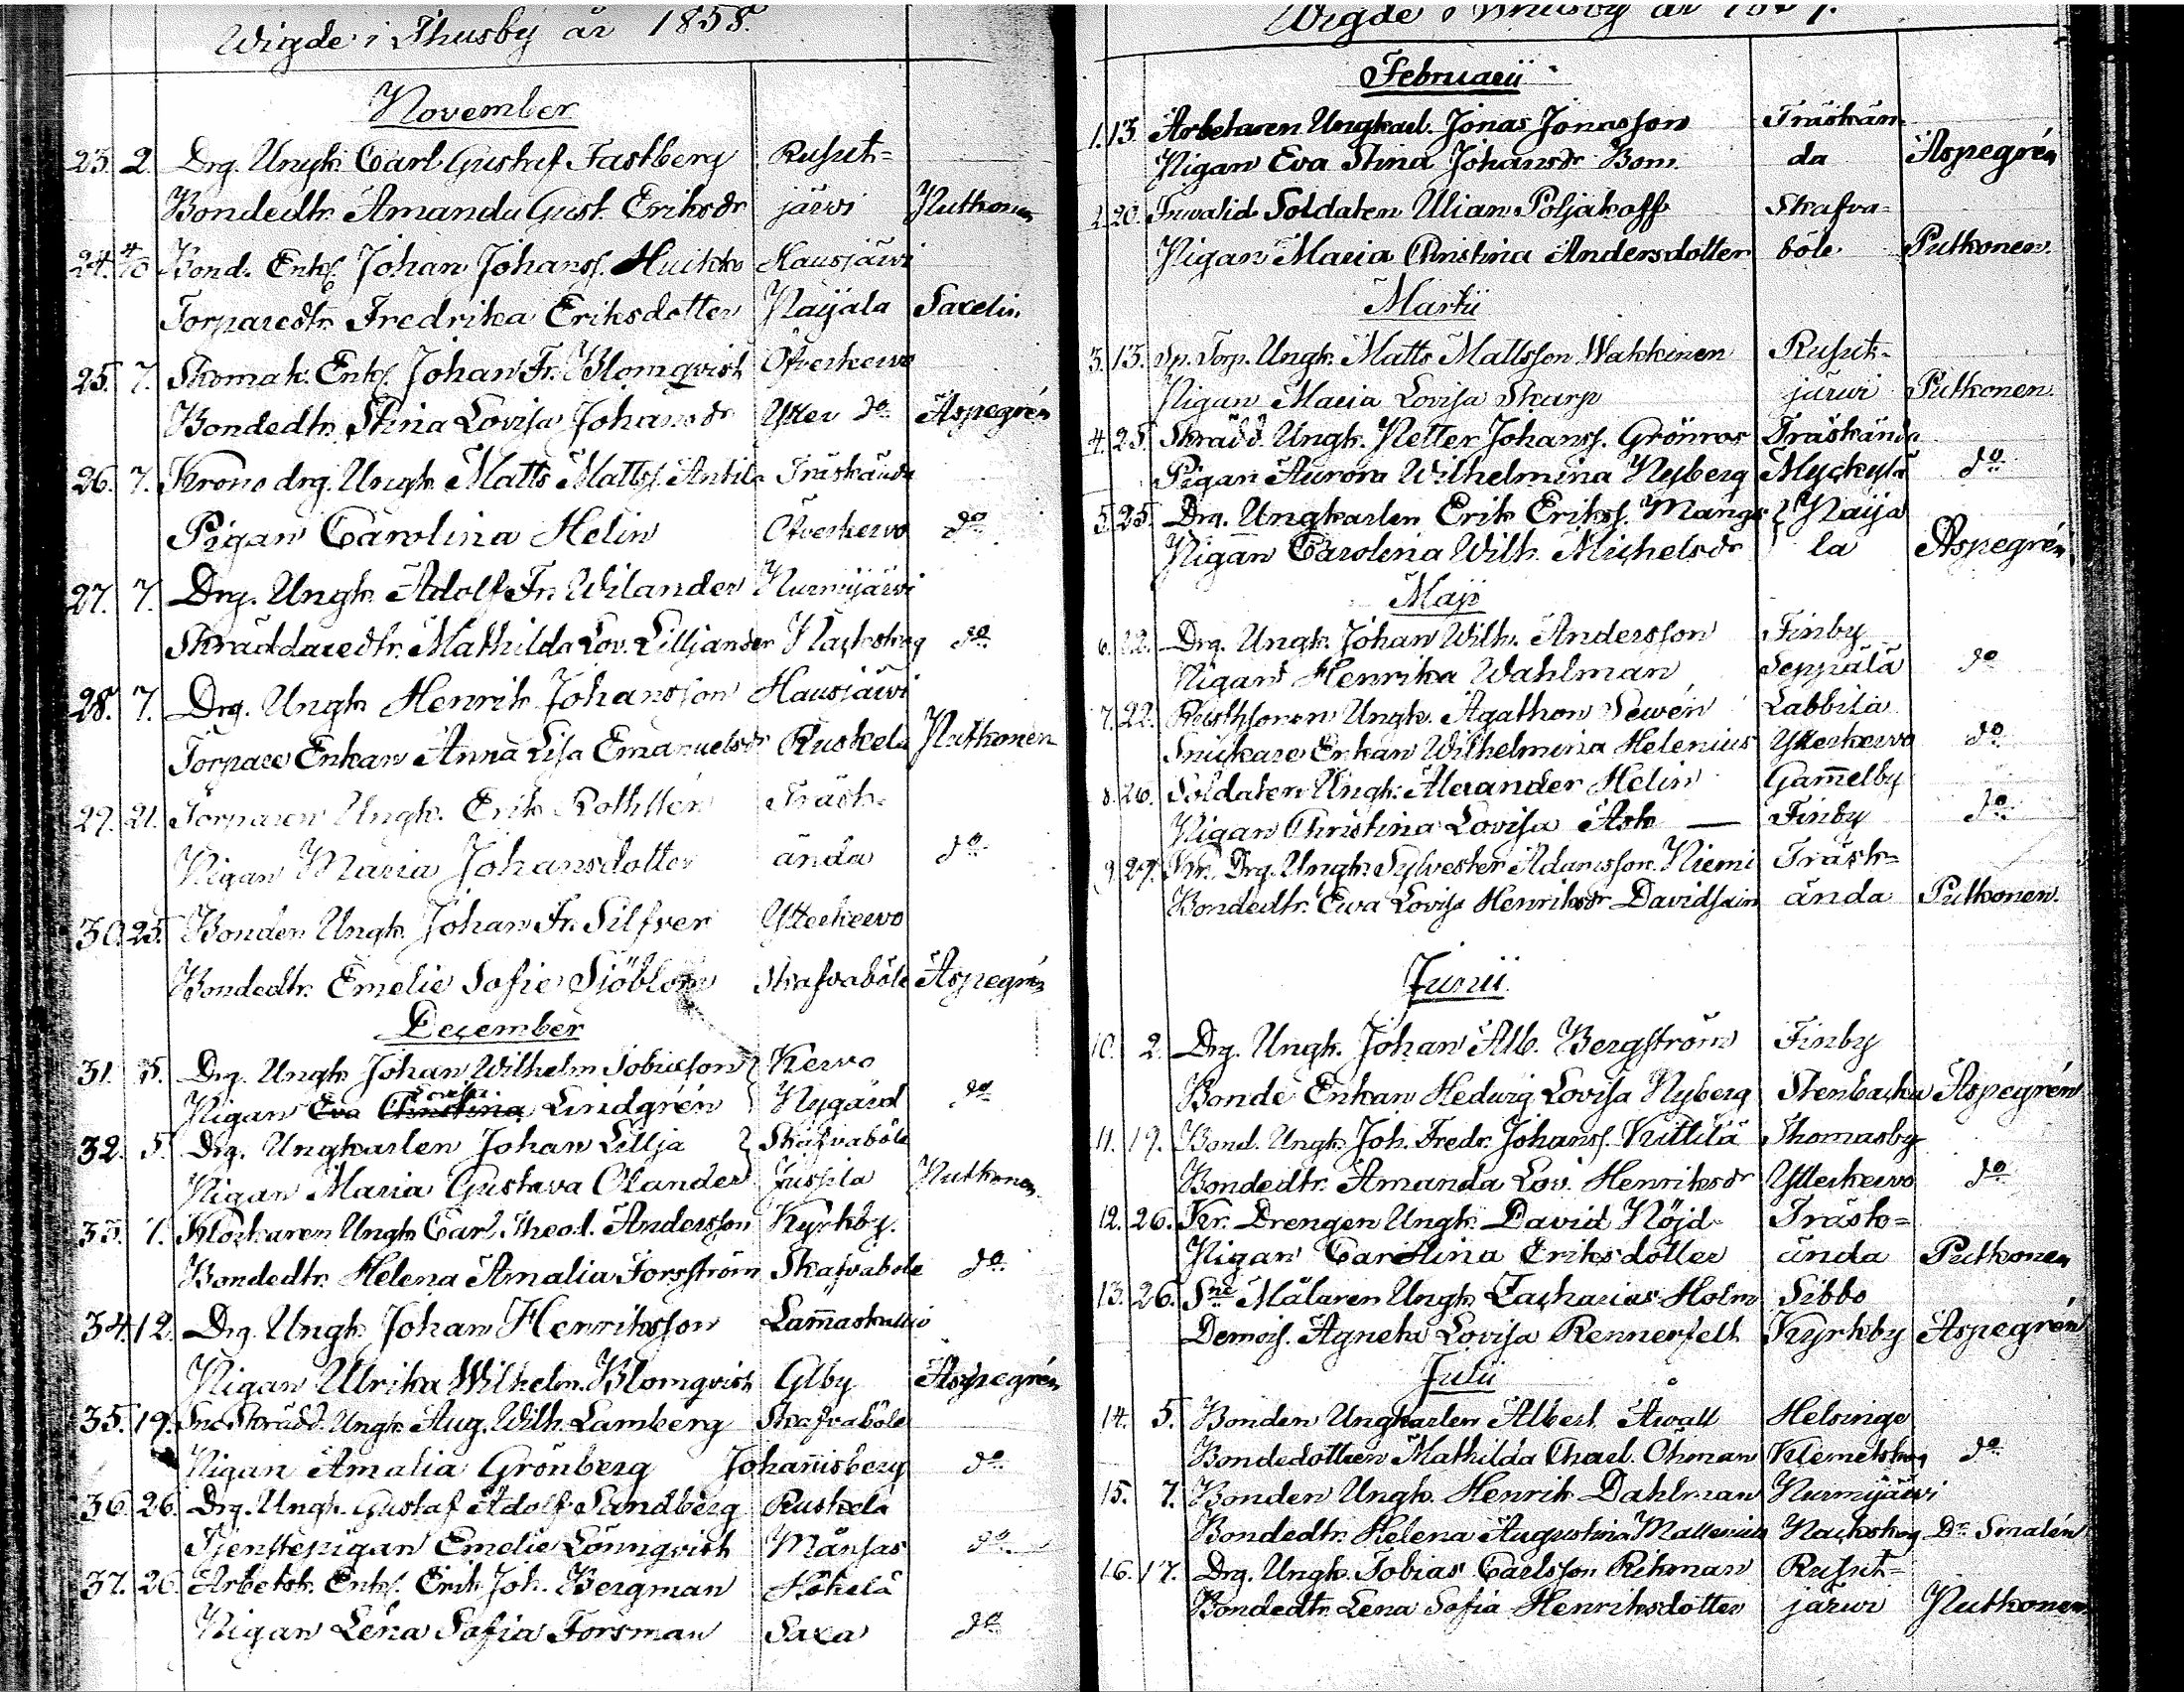 Wigde i Thusby år 1858.
November
23. 2. Drg. Ungk. Carl Gustaf Fastberg Rusut=
Bondedtr. Amanda Gust. Eriksdr järvi Putkonen
24. 4/10 Bond. Enkl. Johan Johanss. Huikko Hausjärvi
Torparedtr. Fredrika Eriksdotter Paijala Saxelin
25. 7. Skomak. Enkl. Johan Fr. Blomqvist Öfverkervo
Bondedtr. Stina Lovisa Johansdr Ytter do Aspegrén
26. 7. Krono drg. Ungk. Matts Matts. Antila Träskända
Pigan Carolina Helin Öfverkervo do
27. 7. Drg. Ungk. Adolf Fr. Wilander Nurmijärvi
Skräddaredtr. Mathilda Lov. Lilljander Nackskog do
28. 7. Drg. Ungk. Henrik Johansson Hausjärvi
Torpare Enkan Anna Lisa Emanuelsdr Ruskela Putkonen
29. 21. Torparen Ungk. Erik Rothstén Träsk=
Pigan Maria Johansdotter ända do
30. 25. Bonden Ungk. Johan Fr. Silfver Ytterkervo
Bondedtr. Emelie Sofie Sjöblom Skafvaböle Aspegrén
December
31. 5. Drg. Ungk. Johan Wilhelm Tobiasson Kervo
Lovisa
Pigan Eva Christina Lindgrén Nygård do
32. 5. Drg. Ungkarlen Johan Lillja Skafvaböle
Pigan Maria Gustava Olander Jussila Putkonen
33. 7. Klockaren Ungk. Carl Theod. Andersson Kyrkby.
Bondedtr. Helena Amalia Forsström Skafvaböle do
34. 12. Drg. Ungk. Johan Henriksson Lammaskallio
Pigan Ulrika Wilhelm. Blomqvist Glby Aspegrén
35. 19. Sne Skrädd. Ungk. Aug. Wilh. Lamberg Skafvaböle
Pigan Amalia Grönberg Johannisberg do
36. 26. Drg. Ungk. Gustaf Adolf Sandberg Ruskela
Tjenstepigan Emelie Lönnqvist Månsas do
37. 26. Arbetsk. Enkl. Erik Joh. Bergman Hökelä
Pigan Lena Sofia Forsman Saxa do
Wigde i Thusby år 1859.
Februarii
1. 13. Arbetaren Ungkarl. Jonas Jonasson Träskän=
Pigan Eva Stina Johansdr Bom. da Aspegrén
2. 20. Invalid Soldaten Ulian Poljakoff Skafva=
Pigan Maria Christina Andersdotter böle Putkonen.
Martii
3. 13. Sp. Torp. Ungk. Matts Mattsson Wakkinen Rusut=
Pigan Maria Lovisa Skarp järvi Putkonen.
4. 25. Skrädd. Ungk. Petter Johanss. Grönroos Träskända
Pigan Aurora Wilhelmina Nyberg Myckylä do
5. 25. Drg. Ungkarlen Erik Erikss. Mangs Paija
Pigan Carolina Wilh. Michelsdr la Aspegrén
Maji
6. 22. Drg. Ungk. Johan Wilh. Andersson Finby
Pigan Henrika Wahlman Seppälä do
7. 22. Rusthsonen Ungk. Agathon Sewén Labbila
Snickare Enkan Wilhelmina Helenius Ytterkervo do
8. 26. Soldaten Ungk. Alexander Helin Gammelby
Pigan Christina Lovisa Ask — Finby do
9. 29. Kr. Drg. Ungk. Sylvester Adamsson Niemi Träsk=
Bondedtr. Ewa Lovisa Henriksdr Davidsain ända Putkonen.
Junii
10. 2. Drg. Ungk. Johan Alb. Bergström Finby
Bonde Enkan Hedvig Lovisa Nyberg Stenbacka Aspegrén
11. 19. Bond. Ungk. Joh. Fredr. Johanss. Kuttilä Thomasby
Bondedtr. Amanda Lov. Henriksdr Ytterkervo do
12. 26. Kr. Drengen Ungk. David Nöjd Träsk=
Pigan Carolina Eriksdotter ända Putkonen
13. 26. Sne Målaren Ungk. Zacharias Holm Sibbo
Demois. Agneta Lovisa Rennerfelt Kyrkby Aspegrén
Julii
14. 5. Bonden Ungkarlen Albert Åwall Helsinge
Bondedottren Mathilda Charl. Öhman Klemetskog do
15. 7. Bonden Ungk. Henrik Dahlman Nurmijärvi
Bondedtr. Helena Augustina Mattenius Nackskog Dr Smalén
16. 17. Drg. Ungk. Tobias Carlsson Rikman Rusut=
Bondedtr. Lena Sofia Henriksdotter järvi Putkonen